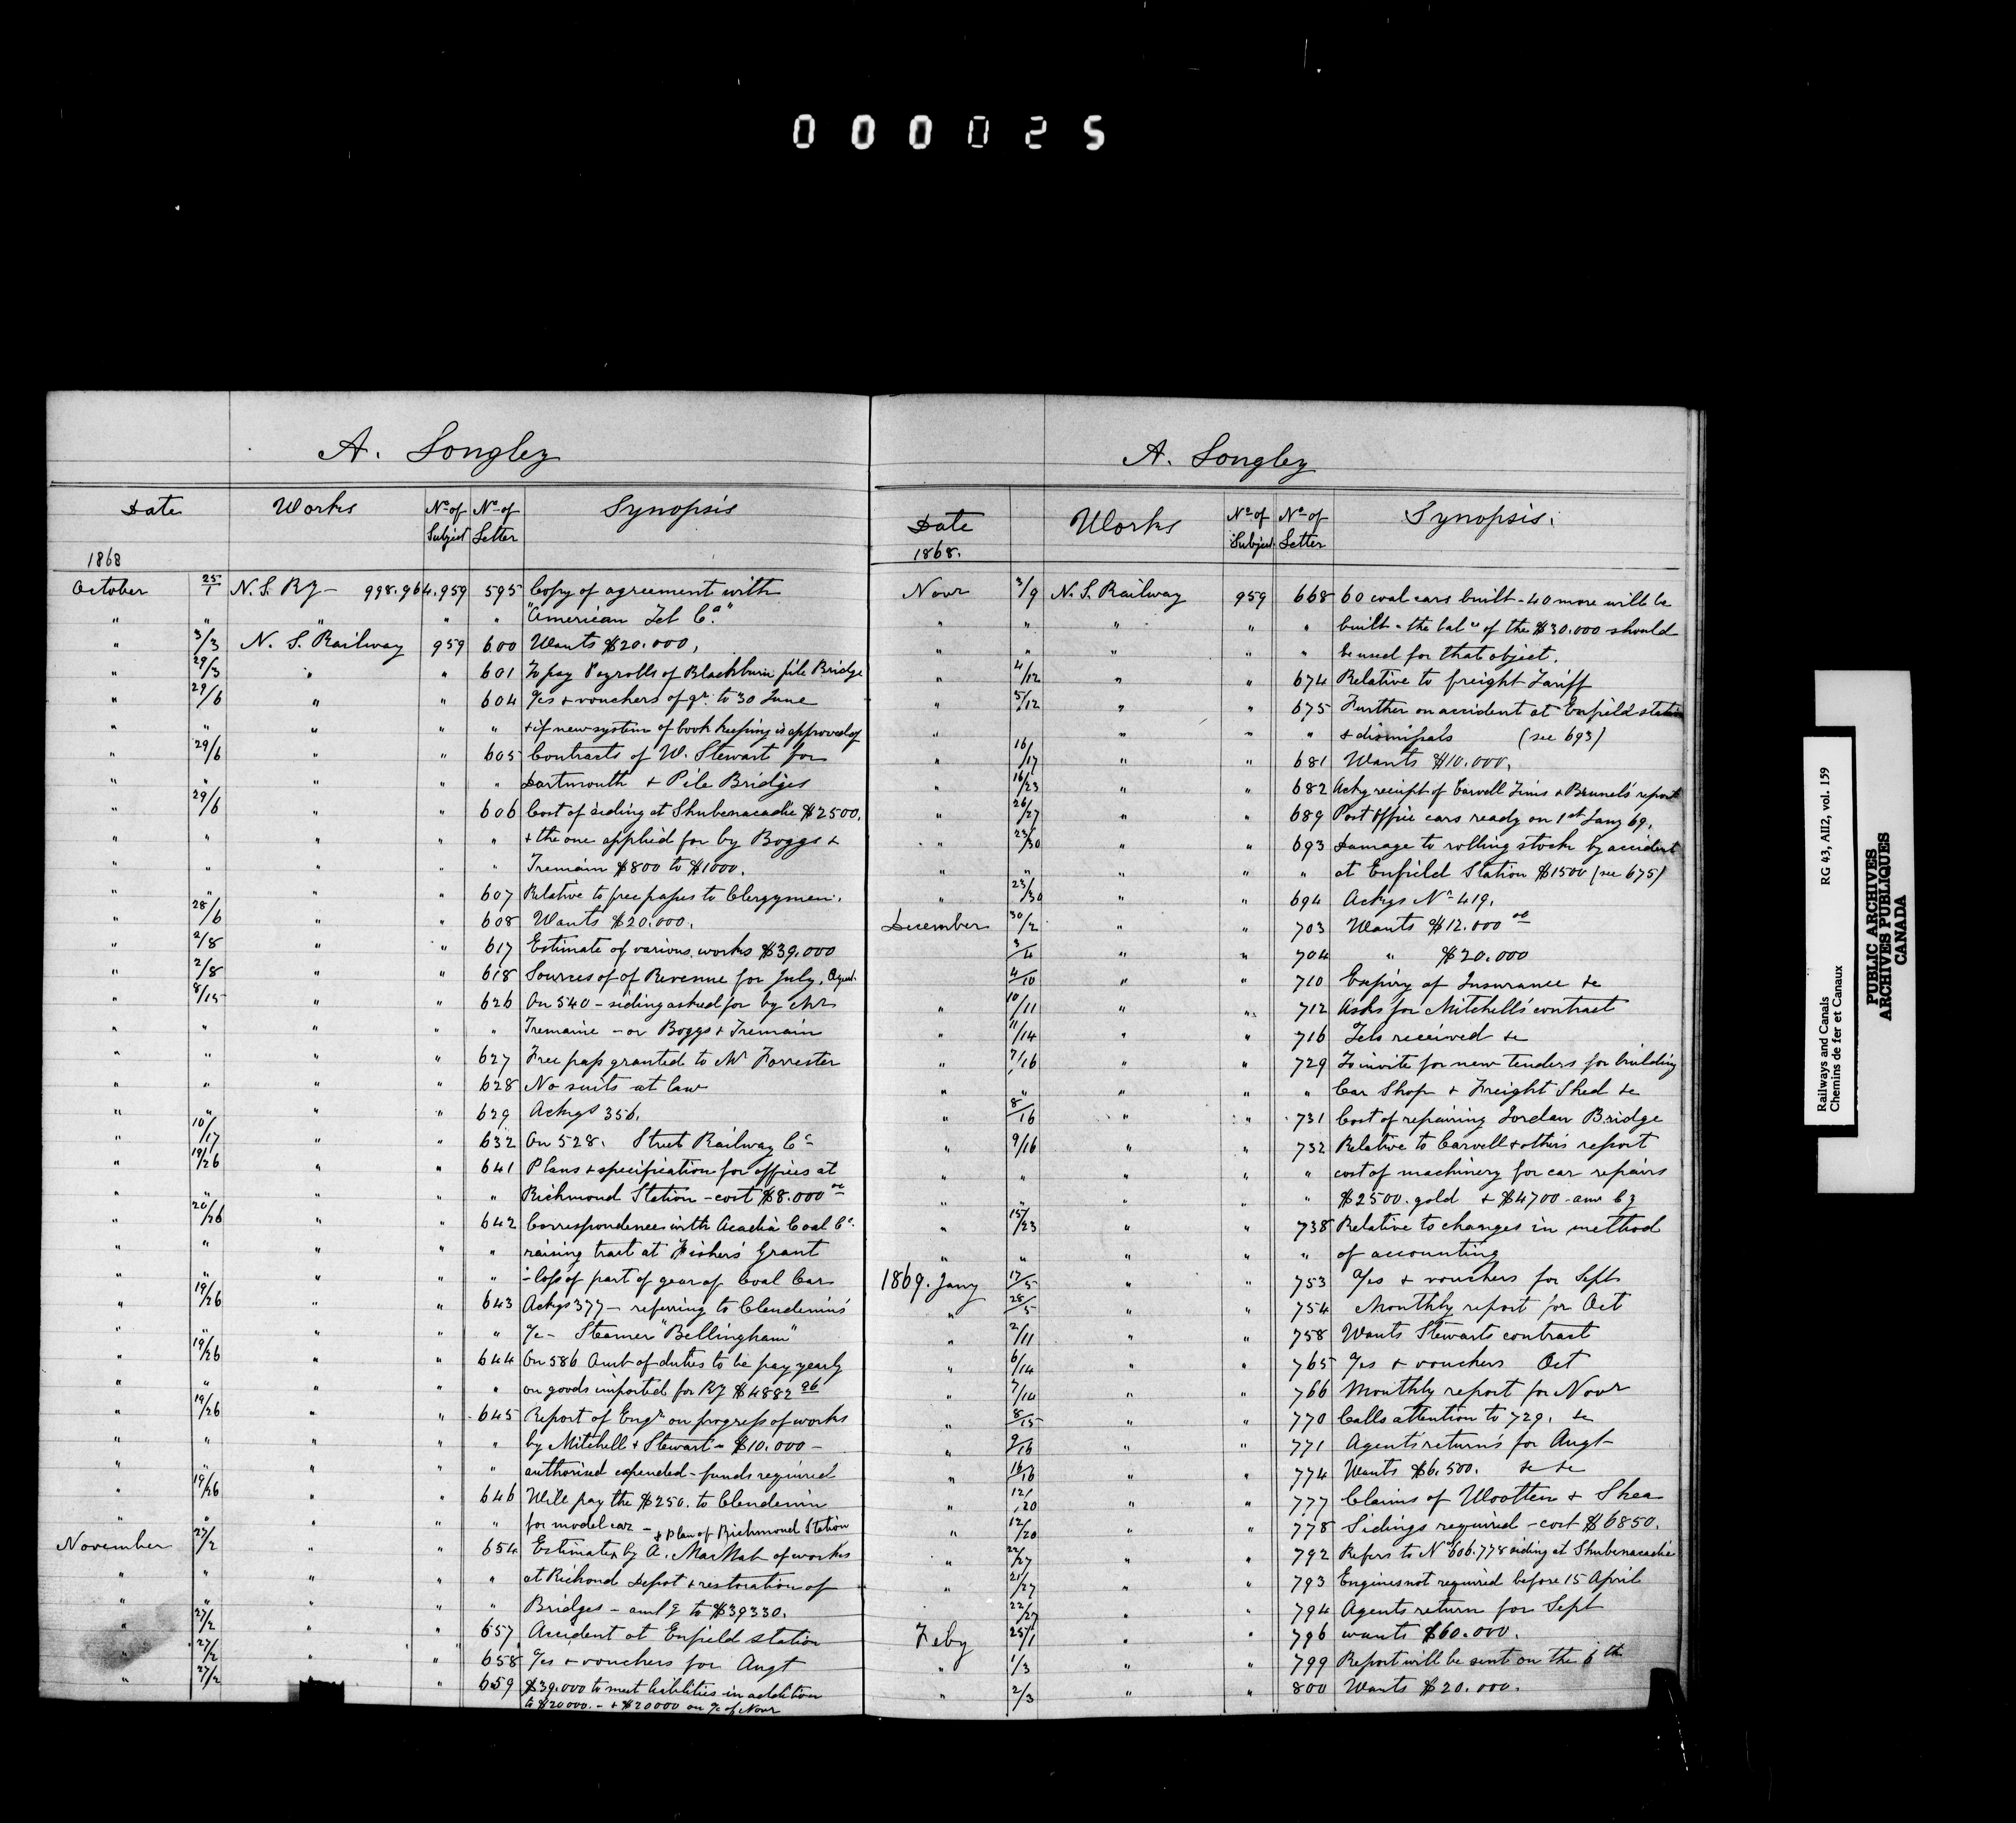 000025
A. Longley
Date Works No of Subject No of Letter Synopsis
1868
October 25/1 N. S. Ry - 998.964.959 595 Copy of agreement with
" " " " " "American Tel Co."
" 3/3 N. S. Railway 959 600 Wants $20.000,
" 29/3 " " 601 To pay Payrolls of Blackburn pile Bridge
" 29/6 " " 604 a/cs + vouchers of qr. to 30 June
" " " " " + if new system of book keeping is approved of
" 29/6 " " 605 Contracts of W. Stewart for
" " " " " Dartmouth + Pile Bridges
" 29/6 " " 606 Cost of siding at Shubenacadie $2500.
" " " " " + the one applied for by Boggs +
" " " " " Tremain $800 to $1000.
" " " " 607 Relative to free passes to Clergymen.
" 28/6 " " 608 Wants $20.000.
" 2/8 " " 617 Estimate of various works $39.000
" 2/8 " " 618 Sources of of Revenue for July,
" 8/15 " " 626 On 540 - siding asked for by Mr
" " " " " Tremaine - or Boggs + Tremain
" " " " 627 Free pass granted to Mr Forrester
" " " " 628 No suits at law
" " " " 629 Ackgs 356.
" 10/17 " " 632 On 528. Street Railway Co
" 19/26 " " 641 Plans + specification for offices at
" " " " " Richmond Station - cost $8.000 00
" 20/26 " " 642 Correspondence with Acadia Coal Co.
" " " " " raising tract at Fishers Grant
" " " " " - loss of part of gear of Coal Cars
" 19/26 " " 643 Ackgs 377 - referring to Clendenins
" " " " " a/c - Steamer "Bellingham"
" 19/26 " " 644 On 586 Amt of duties to be pay yearly
" " " " " on goods imported for Ry $4882 96
" 19/26 " " 645 Report of Engr on progress of works
" " " " " by Mitchell + Stewart - $10.000 -
" " " " " authorised expended - funds required
" 19/26 " " 646 Will pay the $250. to Clendenin
" " " " " for model car - + Plan of Richmond Station
November 27/2 " " 654 Estimate by A. MacNab of works
" " " " " at Richond Depot + restoration of
" " " " " Bridges - amt g to $39330.
" 27/2 " " 657 Accident at Enfield station
" 27/2 " " 658 a/cs + vouchers for Augt
" 27/2 " 659 $39.000 to meet liabilities in addition
to $20000. - + $20000 on a/c of Novr
A. Longley
Date Works No of Subject No of Letter Synopsis.
1868.
Novr 3/9 N. S. Railway 959 668 60 coal cars built - 40 more will be
" " " " " built - the bal ce of the $30.000 should
" " " " " be used for that object.
" 4/12 " " 674 Relative to freight Tariff
" 5/12 " " 675 Further on accident at Enfield station
" " " " + dismissals (see 693)
16/17 " " 681 Wants $10.000.
" 16/23 " " 682 Ackg receipt of Carvell Tims + Brunels report
26/27 " " 689 Post Office cars ready on 1st Jany 69.
" 23/30 " " 693 Damage to rolling stock by accident
" " " " " at Enfield Station $1500 (see 675)
" 23/30 " " 694 Ackgs No 419.
December 30/2 " " 703 Wants $12.000 00
3/4 " " 704 " $20.000
4/10 " " 710 Expiry of Insurance &c
" 10/11 " " 712 Asks for Mitchell's contract
" 11/14 " " 716 Tels received &c
" 7/16 " " 729 To invite for new tenders for building
" " " " " Car Shop + Freight Shed &c
8/16 " " 731 Cost of repairing Jordan Bridge
" 9/16 " " 732 Relative to Carvell + others report
" " " " " cost of machinery for car repairs
" " " " " $2500. gold + $4700 - amr Cy
15/23 " " 738 Relative to changes in method
" " " " " of accounting
1869. Jany 17/5 " " 753 a/cs + vouchers for Sept
" 28/5 " " 754 Monthly report for Oct
" 2/11 " " 758 Wants Stewarts contract
" 6/14 " " 765 a/cs + vouchers Oct
" 7/14 " " 766 Monthly report for Novr
" 8/15 " " 770 Calls attention to 729. &c
" 9/16 " " 771 Agents returns for Augt
" 16/16 " " 774 Wants $6.500. &c &c
" 12/20 " " 777 Claims of Wootten + Shea
" 12/20 " " 778 Sidings required - cost $6850.
" 22/27 " " 792 Refers to No 606.778 siding at Shubenacadie
" 21/27 " " 793 Engines not required before 15 April
22/27 " " 794 Agents return for Sept
Feby 25/1 " " 796 wants $60.000.
" 1/3 " " 799 Report will be sent on the 6th
" 2/3 " " 800 Wants $20.000.
Railways and Canals RG 43, AII2, vol. 159
Chemins de fer et Canaux
PUBLIC ARCHIVES
ARCHIVES PUBLIQUES
CANADA